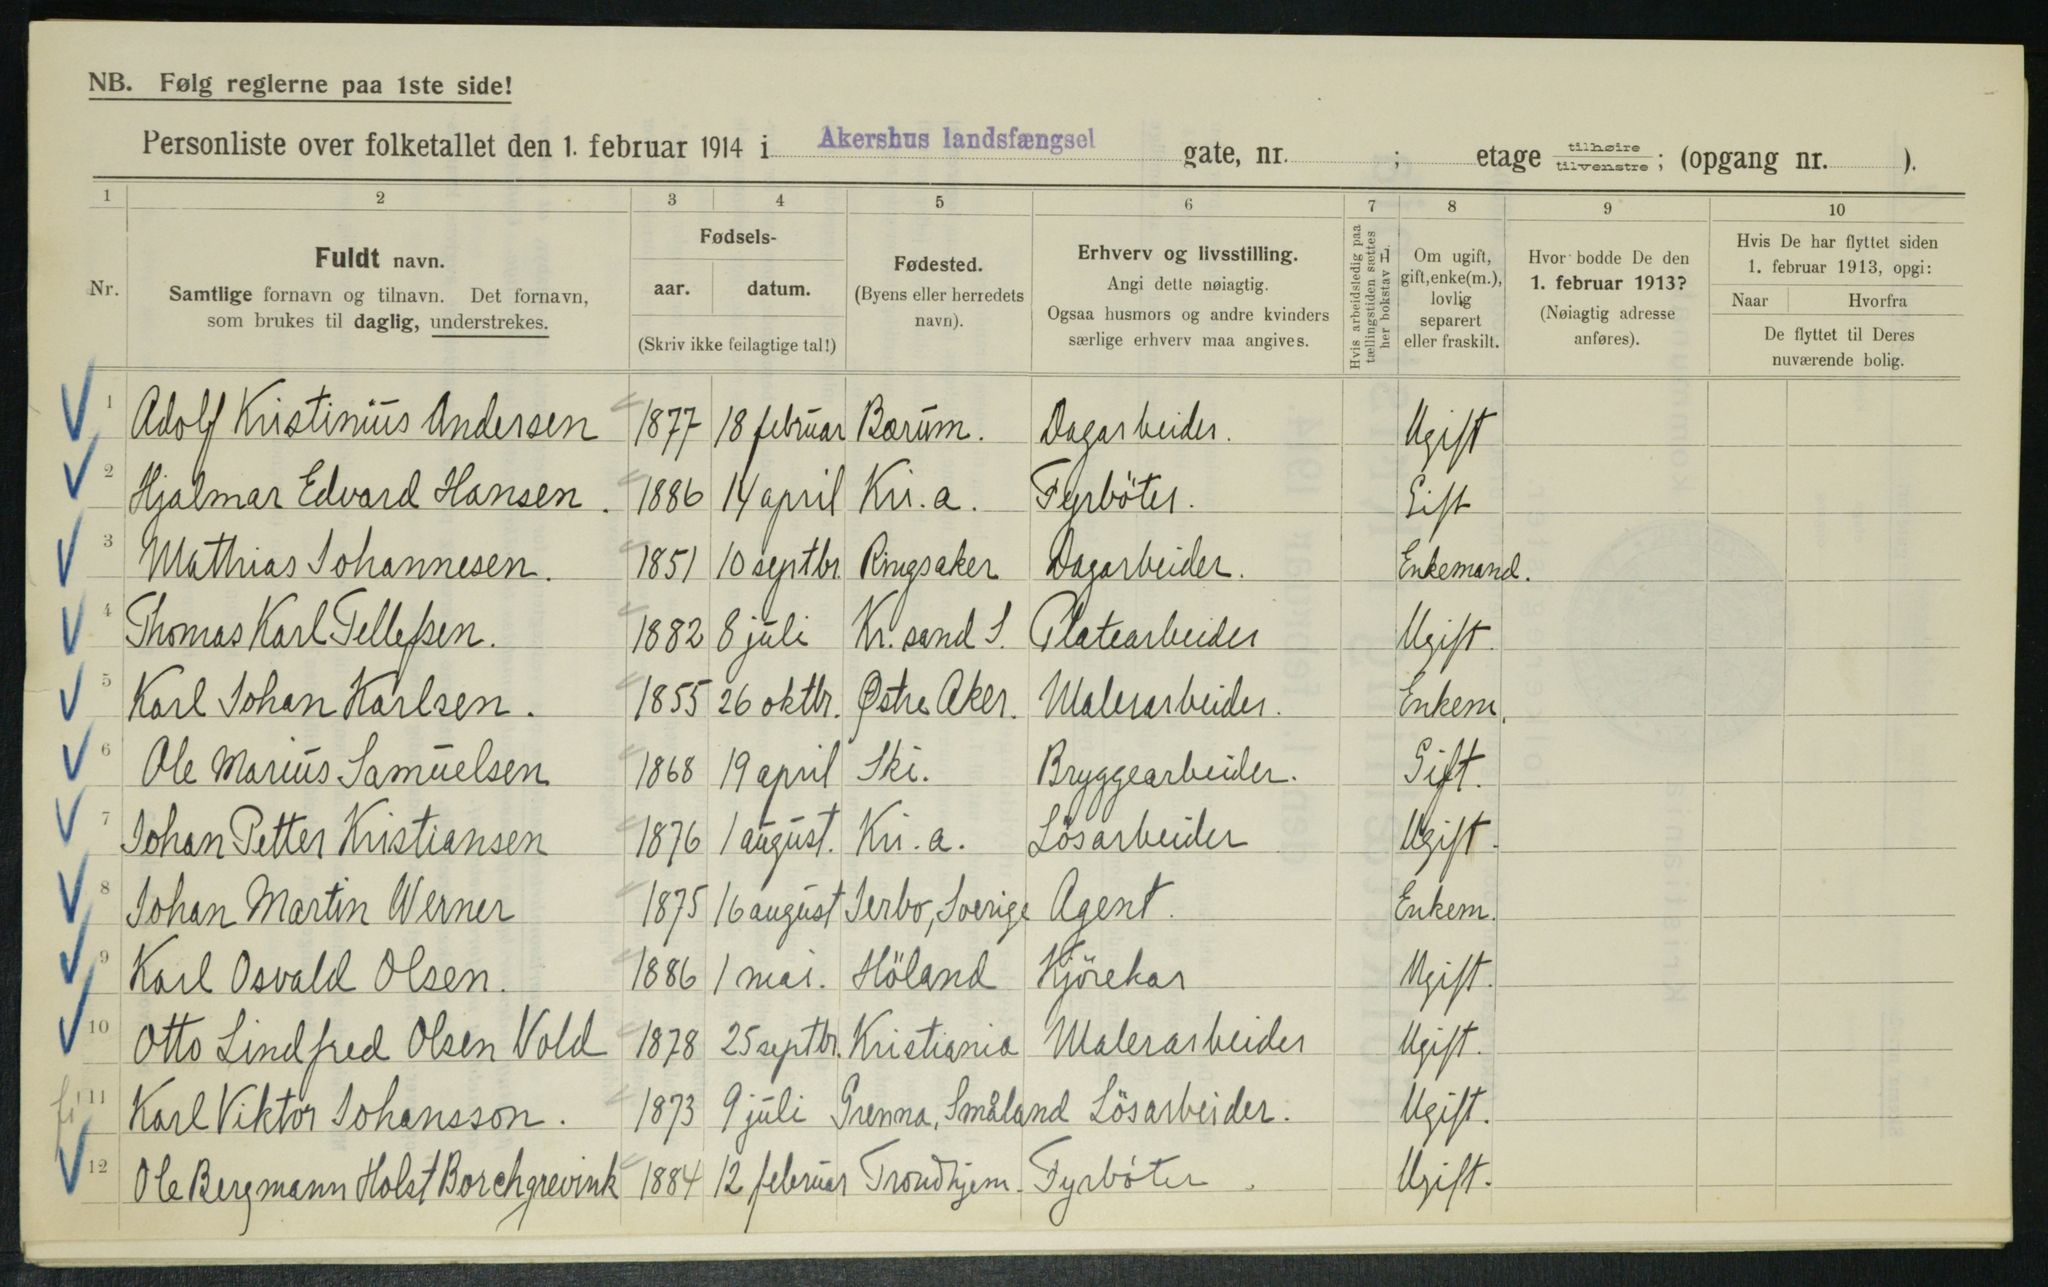 NB. Følg reglerne paa 1ste side!
Personliste over folketallet den 1. februar 1914 i Akershus landsfængsel gate, nr. ; etage tilhøire / tilvenstre; (opgang nr. ).
1 2 3 4 5 6 7 8 9 10
Nr.
Fuldt navn.
Samtlige fornavn og tilnavn. Det fornavn,
som brukes til daglig, understrekes.
Fødsels-
aar. datum.
(Skriv ikke feilagtige tal!)
Fødested.
(Byens eller herredets
navn).
Erhverv og livsstilling.
Angi dette nøiagtig.
Ogsaa husmors og andre kvinders
særlige erhverv maa angives.
Hvis arbeidsledig paa
tællingstiden sættes
her bokstav L.
Om ugift,
gift, enke(m.),
lovlig
separert
eller fraskilt.
Hvor bodde De den
1. februar 1913?
(Nøiagtig adresse
anføres).
Hvis De har flyttet siden
1. februar 1913, opgi:
Naar Hvorfra
De flyttet til Deres
nuværende bolig.
1 Adolf Kristinius Andersen 1877 18 februar Bærum. Dagarbeider. Ugift
2 Hjalmar Edvard Hansen. 1886 14 april Kr.a. Fyrböter. Gift
3 Mathias Johannesen. 1851 10 septbr. Ringsaker Dagarbeider. Enkemand.
4 Thomas Karl Tellefsen. 1882 8 juli Kr.sand S. Platearbeider Ugift.
5 Karl Johan Karlsen. 1855 26 oktbr. Østre Aker. Malerarbeider. Enkem.
6 Ole Marius Samuelsen 1868 19 april Ski. Bryggearbeider. Gift.
7 Johan Petter Kristiansen 1876 1 august. Kr.a. Lösarbeider Ugift.
8 Johan Martin Werner 1875 16 august Jerbo, Sverige Agent. Enkem.
9 Karl Osvald Olsen. 1886 1 mai. Höland Kjörekar Ugift.
10 Otto Lindfred Olsen Vold 1878 25 septbr. Kristiania Malerarbeider Ugift.
11 Karl Viktor Johansson. 1873 9 juli Grenna, Småland Lösarbeider. Ugift.
12 Ole Bergmann Holst Borchgrevink 1884 12 februar Trondhjem. Fyrböter. Ugift.